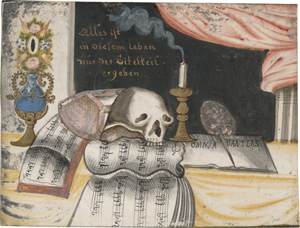 Alles ist
in diesem leben
nur der Eitelkeit
ergeben
OMNIA VANITAS